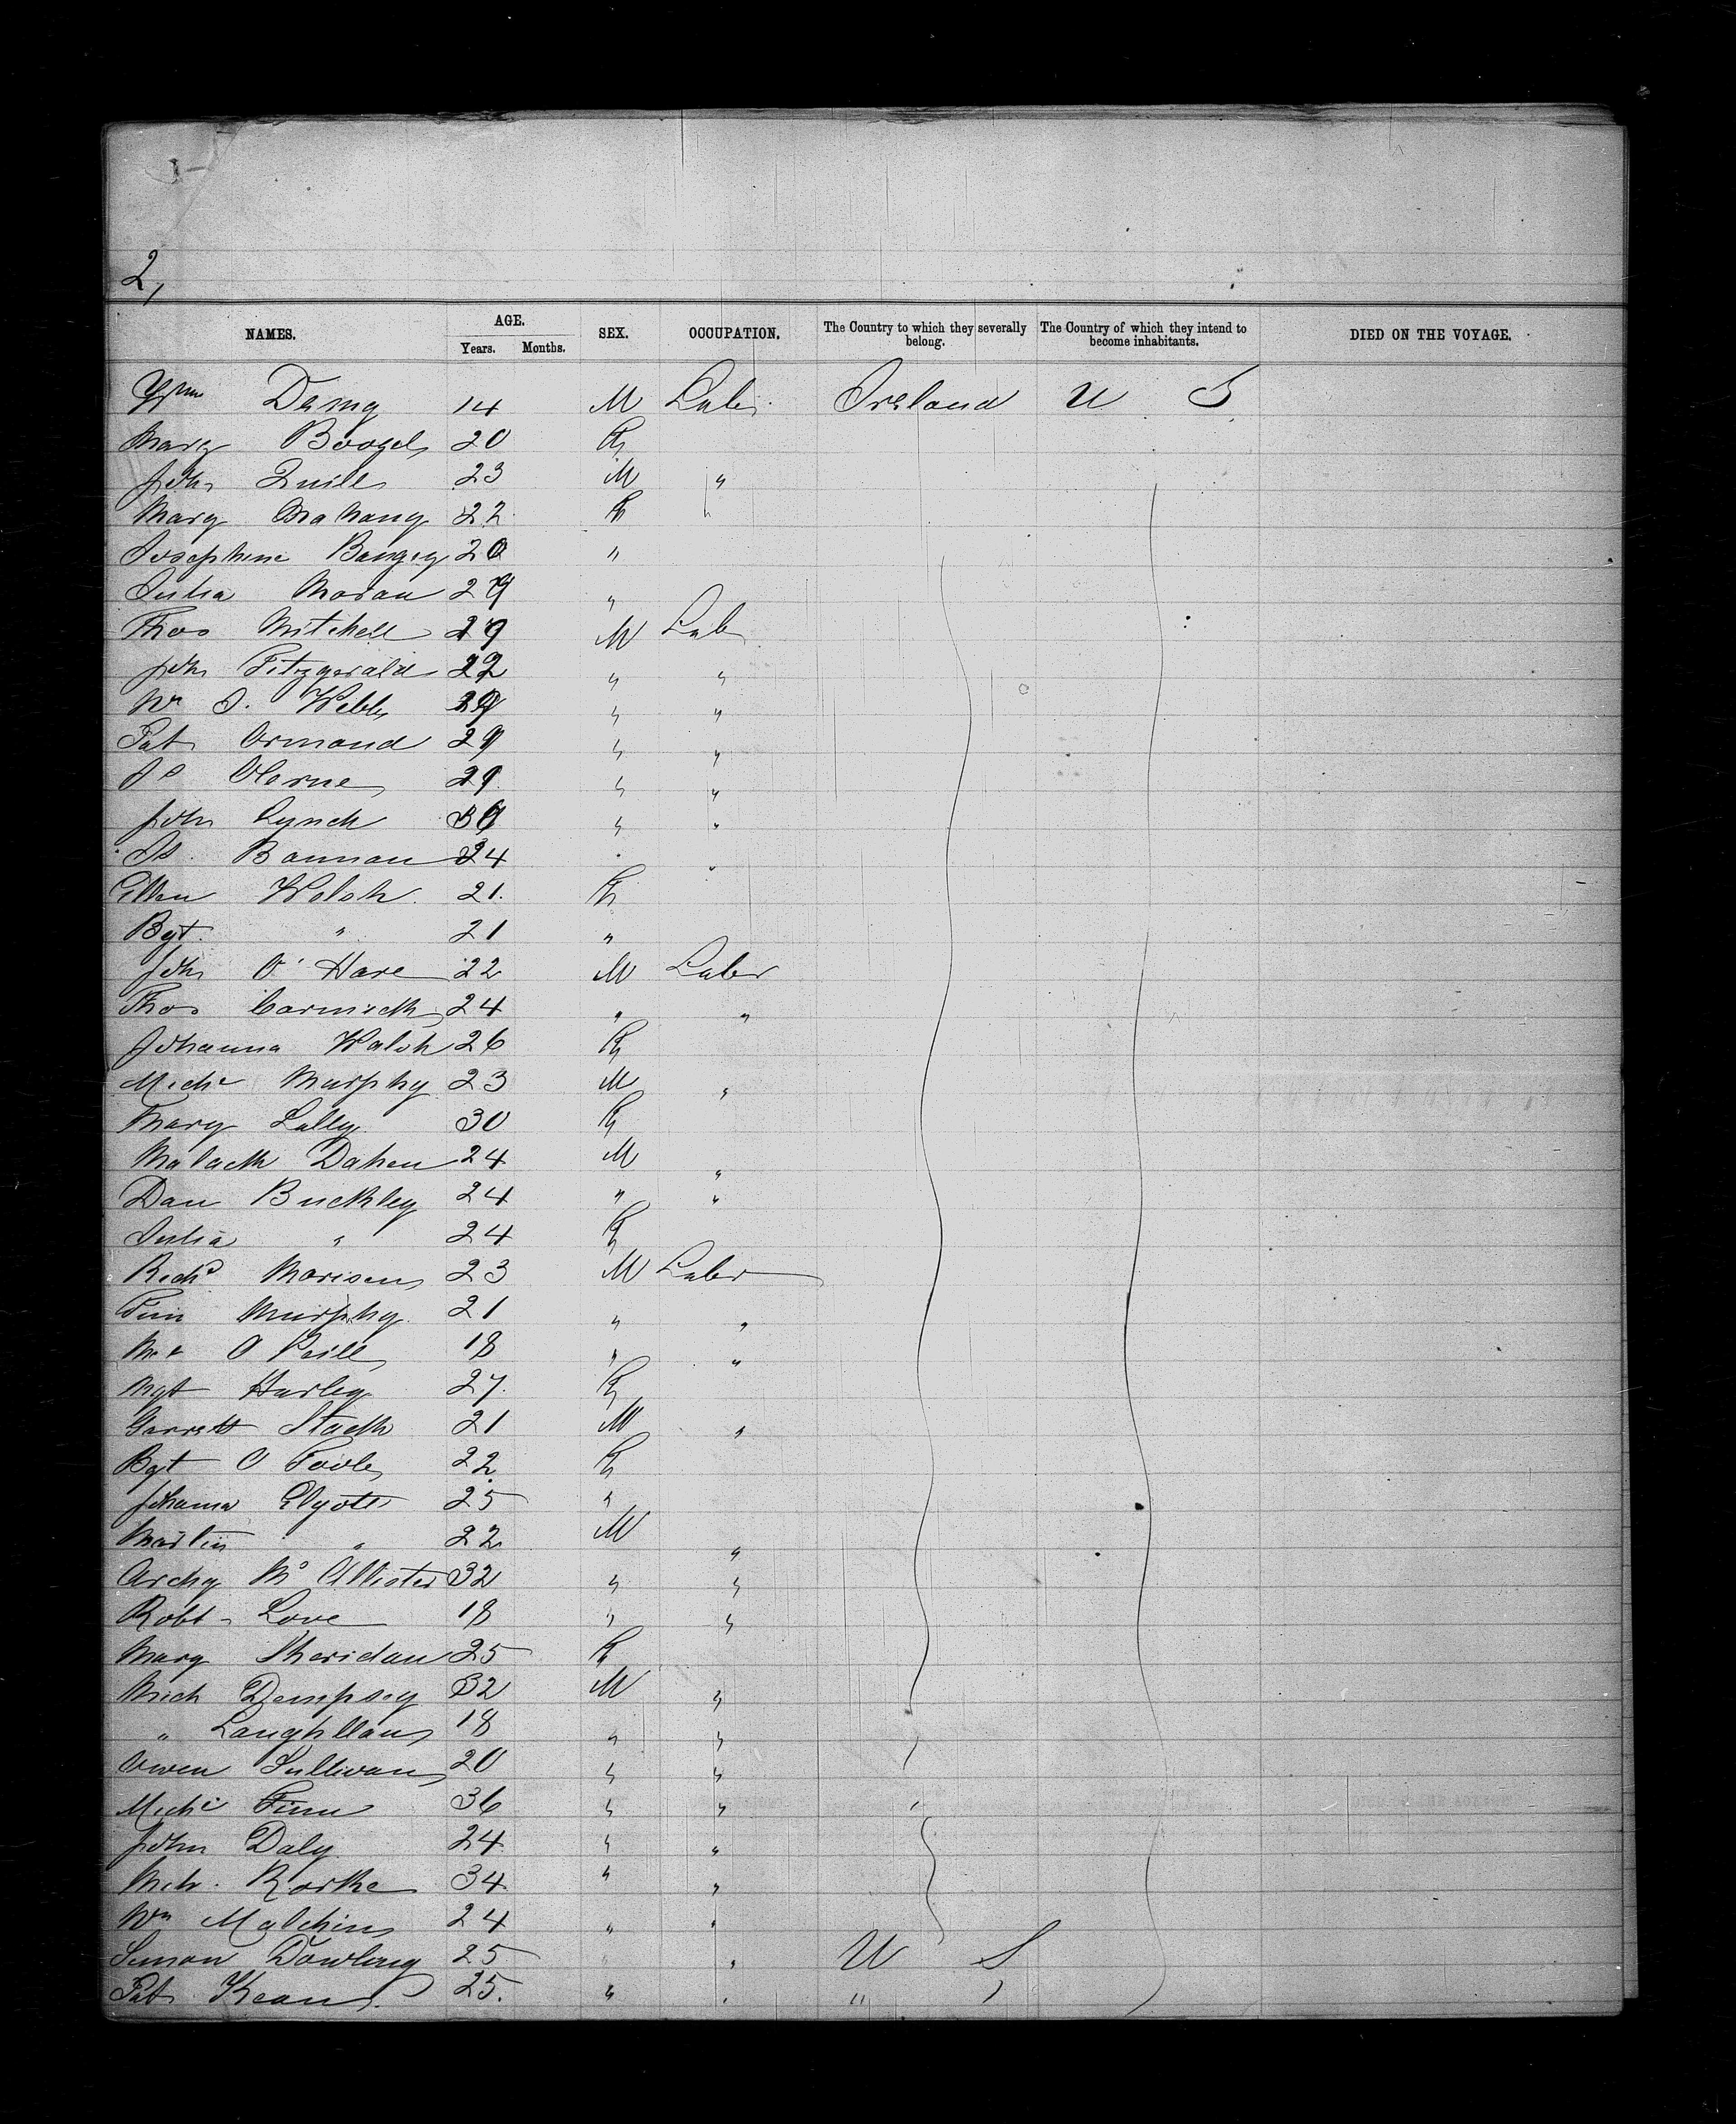 2,
NAMES. AGE. SEX. OCCUPATION. The Country to which they severally belong. The Country of which they intend to become inhabitants. DIED ON THE VOYAGE.
Years. Months.
14 M Labr. Ireland U S
Mary 20 F
John Quill 23 M "
Mary Mahany 22 F "
Josephine 20 "
Julia Moran 29 "
Thos Mitchell 29 M Lab
John Fitzgerald 22 " "
Wm J. Webb " "
Pat Ormond 29 " "
Js " "
John Lynch " "
Js. Bannan 24 " "
Ellen Welsh. 21. F
Bgt. " 21 "
John O'Hare 22 M Labr
Thos 24 " "
Johanna Walsh 26 F
Michl Murphy 23 M "
Mary Lally 30 F
Malach Dahen 24 M "
Dan Buckley 24 " "
Julia " 24 F
Richd Morisen 23 M Labr
Tim Murphy. 21 " "
O'Neill 18 " "
Mgt Hurley 27. F
Garrett Stack 21 M "
Bgt O Toole 22. F
Johanna 25 "
Martin " 22 M "
Archy Mc Allister 32 " "
Robt Love 18 " "
Mary Sheridan 25 F
Mich Dempsey 32 M "
" Laughllan 18 " "
Owen Sullivan 20 " "
Michl Finn 36 " "
John Daly 24 " "
Mich. Rorke 34 " "
Wm Malchin 24 " "
Simon Dowling 25 " U S
Pat Kean. 25. " " " "